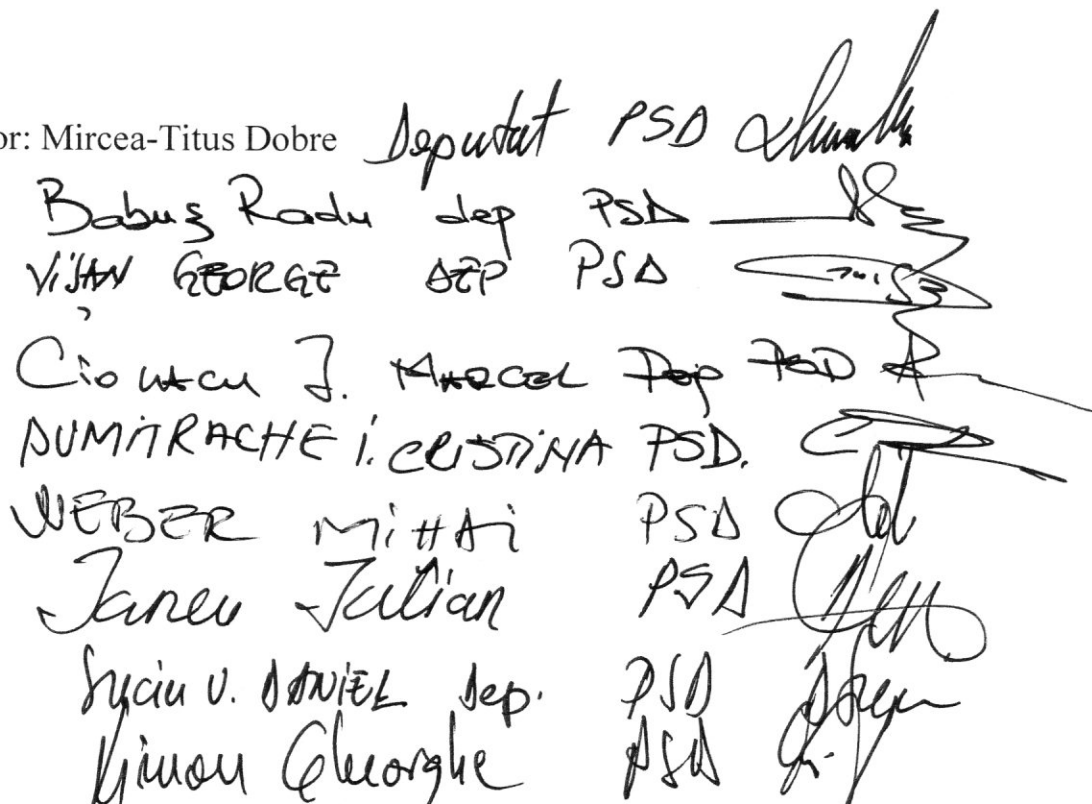 or: Mircea-Titus Dobre Deputat PSD
Babuș Radu dep PSD
VIȘAN GEORGE DEP PSD
Ciolacu I. MARCEL Dep PSD
DUMITRACHE I. CRISTINA PSD.
WEBER MIHAI PSD
Iancu Iulian PSD
Suciu V. DANIEL Dep. PSD
Simon Gheorghe PSD